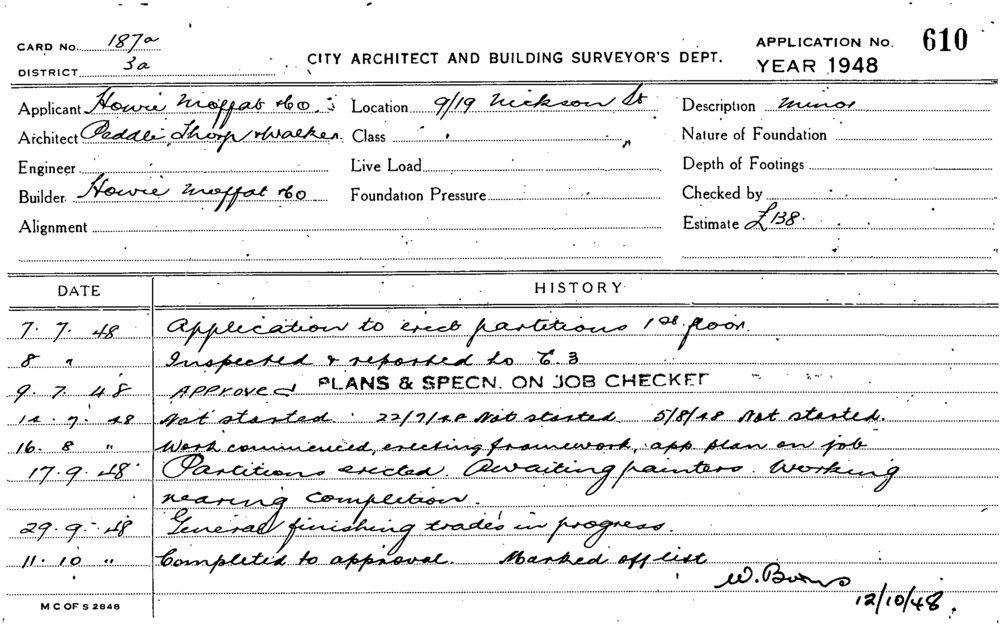 CARD No. 187a
DISTRICT 3a
CITY ARCHITECT AND BUILDING SURVEYOR'S DEPT.
APPLICATION No. 610
YEAR 1948
Applicant Howie Moffat & Co. Location 9/19 Nickson St Description Minor
Architect Peddle, Thorp & Walker. Class Nature of Foundation
Engineer Live Load Depth of Footings
Builder Howie Moffat & Co Foundation Pressure Checked by
Alignment Estimate £138.
DATE HISTORY
7. 7. 48 Application to erect partitions 1st floor.
8 " Inspected & reported to C. 3
9. 7. 48 APPROVED PLANS & SPECN. ON JOB CHECKET
14. 7. 48 Not started. 22/7/48 Not started. 5/8/48 Not started.
16. 8 " Work commenced, erecting framework, app. plan on job
17. 9. 48 Partitions erected. Awaiting painters. Working
nearing completion.
29. 9. 48 General finishing trades in progress.
11. 10 " Completed to approval. Marked off list
W. Burns
12/10/48.
M C OF S 2848